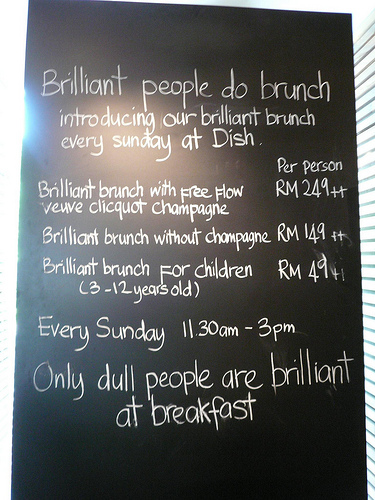 Brilliant people do brunch
introducing our brilliant brunch
every sunday at Dish.
Per person
Brilliant brunch with Free Flow RM 249++
veuve clicquot champagne
Brilliant brunch without champagne RM 149 ++
Brilliant brunch For children RM 49++
(3-12 years old)
Every Sunday 11.30am - 3pm
Only dull people are brilliant
at breakfast